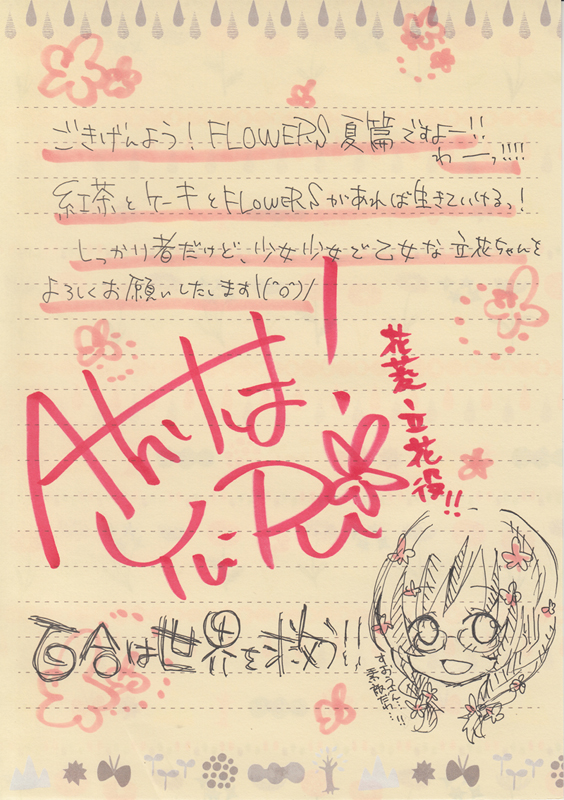 ごきげんよう！FLOWERS 夏篇ですよー!!
わーっ!!!!
紅茶とケーキとFLOWERSがあれば生きていけるっ！
しっかり者だけど、少女少女で乙女な立花ちゃんを
よろしくお願いしたします\(^o^)/
花菱 立花役!!
YuiPu
百合は世界を救う!!
すおうさん…
素敵だわ…!!